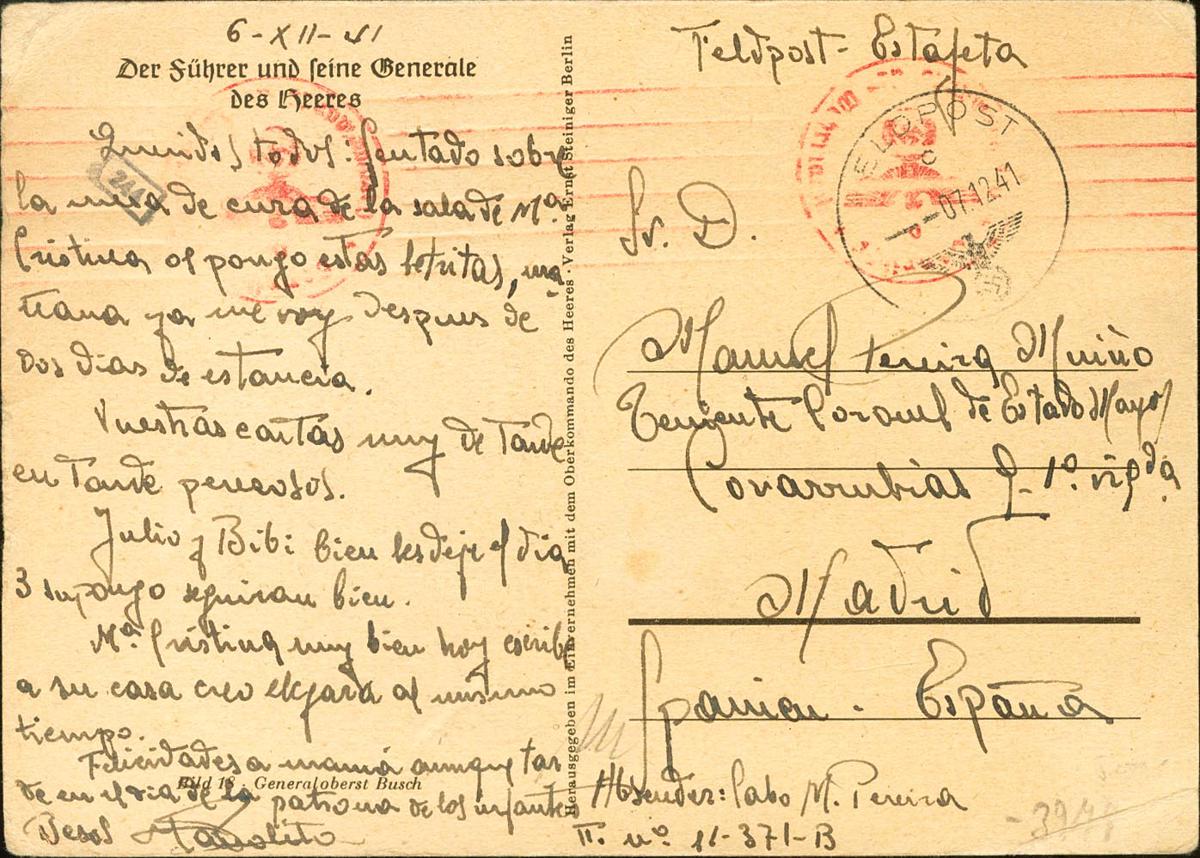 6-XII-41
Der Führer und seine Generale
des Heeres
Queridos todos: Sentado sobre
la mesa de cura de la sala de Mª
Cristina os pongo estas letritas, ma
ñana ya me voy despues de
dos dias de estancia.
Vuestras cartas muy de tarde
en tarde perezosos.
Julio y Bibi bien les deje el dia
3 supongo seguiran bien.
Mª Cristina muy bien hoy escribe
a su casa creo llegara al mismo
tiempo.
Felicidades a mamá aunque tar
de en el dia de la patrona de los infantes
Bild 18 Generaloberst Busch
Besos Manolito
Herausgegeben im Einvernehmen mit dem Oberkommando des Heeres · Verlag Ernst Steiniger Berlin
Feldpost - Estafeta
FELDPOST
c
-07.12.41
244
Sr. D.
Manuel Pereira Muiño
Teniente Coronel de Estado Mayor
Covarrubias 9- 1º izqda
Madrid
Spanien - España
Absender: Cabo M. Pereira
F. nº 11-371-B